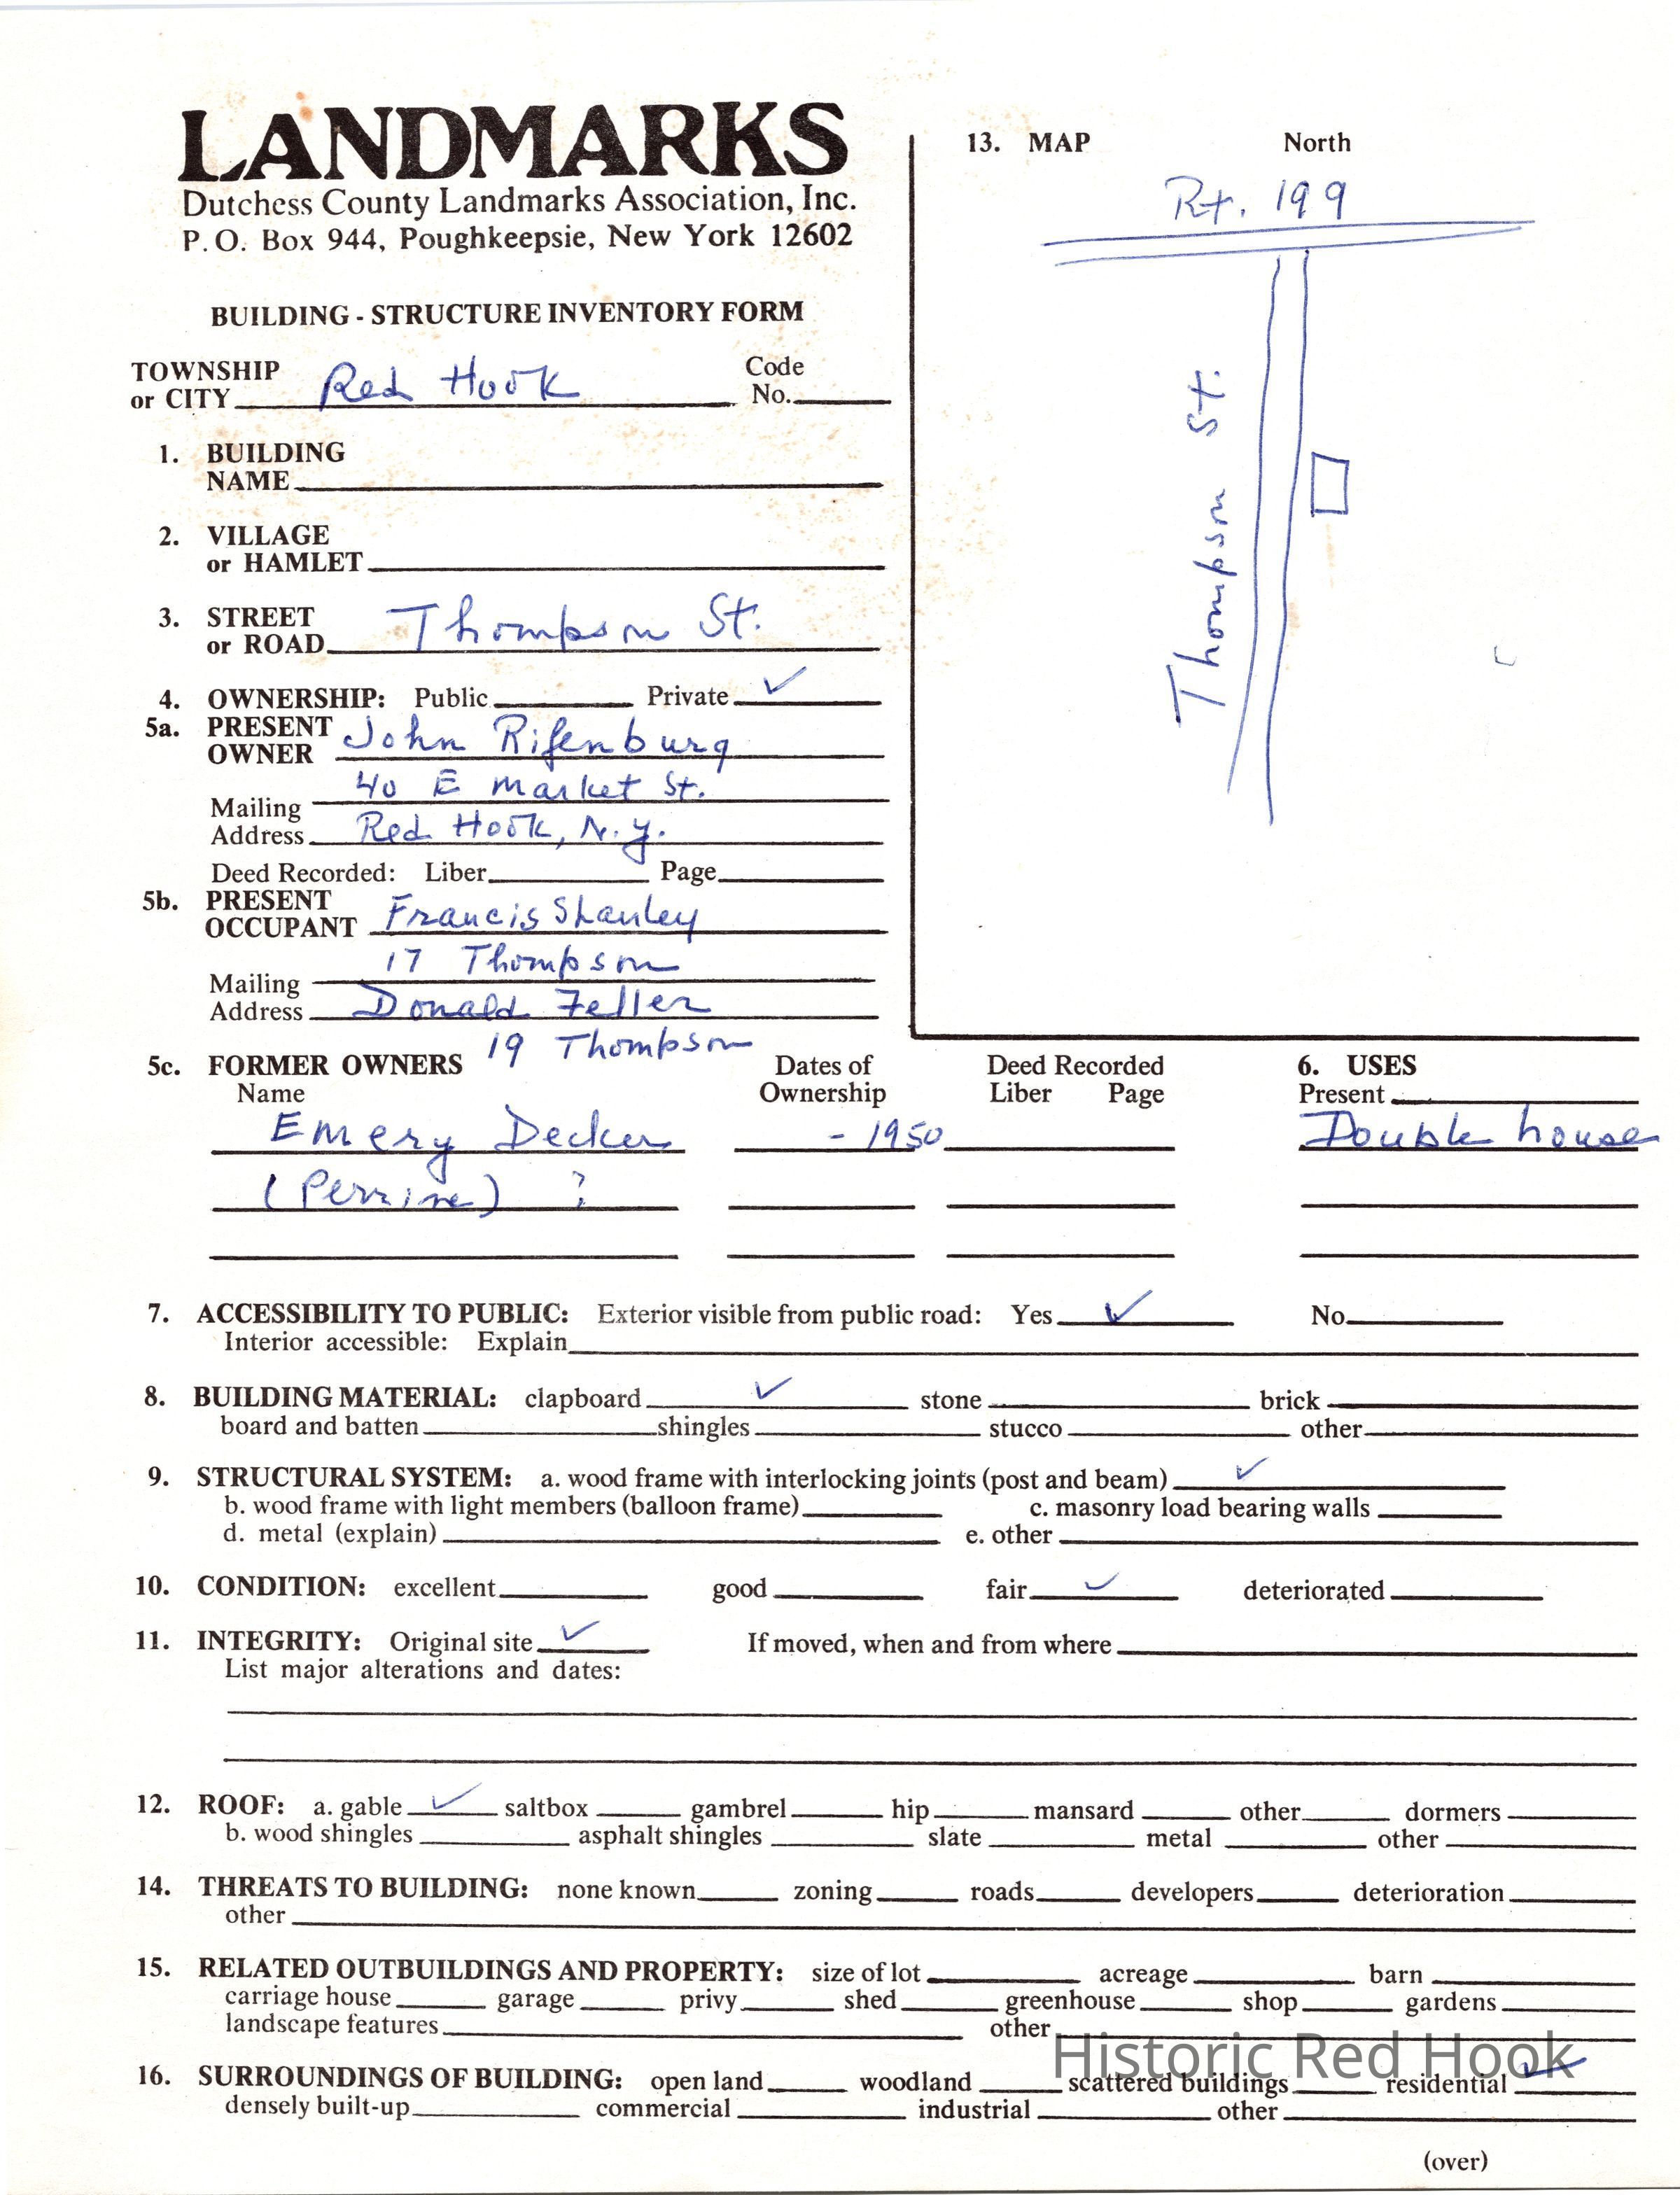 LANDMARKS
Dutchess County Landmarks Association, Inc.
P. O. Box 944, Poughkeepsie, New York 12602
BUILDING - STRUCTURE INVENTORY FORM
TOWNSHIP or CITY Red Hook Code No.
1. BUILDING
NAME
2. VILLAGE
or HAMLET
3. STREET
or ROAD Thompson St.
4. OWNERSHIP: Public Private ✓
5a. PRESENT
OWNER John Rifenburg
40 E Market St.
Mailing
Address Red Hook, N.Y.
Deed Recorded: Liber Page
5b. PRESENT
OCCUPANT Francis Stanley
17 Thompson
Mailing
Address Donald Feller
19 Thompson
13. MAP North
Rt. 199
Thompson St.
5c. FORMER OWNERS Dates of Deed Recorded 6. USES
Name Ownership Liber Page Present
Emery Decker - 1950 Double house
(Perrine) ?
7. ACCESSIBILITY TO PUBLIC: Exterior visible from public road: Yes ✓ No
Interior accessible: Explain
8. BUILDING MATERIAL: clapboard ✓ stone brick
board and batten shingles stucco other
9. STRUCTURAL SYSTEM: a. wood frame with interlocking joints (post and beam) ✓
b. wood frame with light members (balloon frame) c. masonry load bearing walls
d. metal (explain) e. other
10. CONDITION: excellent good fair ✓ deteriorated
11. INTEGRITY: Original site ✓ If moved, when and from where
List major alterations and dates:
12. ROOF: a. gable ✓ saltbox gambrel hip mansard other dormers
b. wood shingles asphalt shingles slate metal other
14. THREATS TO BUILDING: none known zoning roads developers deterioration
other
15. RELATED OUTBUILDINGS AND PROPERTY: size of lot acreage barn
carriage house garage privy shed greenhouse shop gardens
landscape features other
Historic Red Hook
16. SURROUNDINGS OF BUILDING: open land woodland scattered buildings residential ✓
densely built-up commercial industrial other
(over)